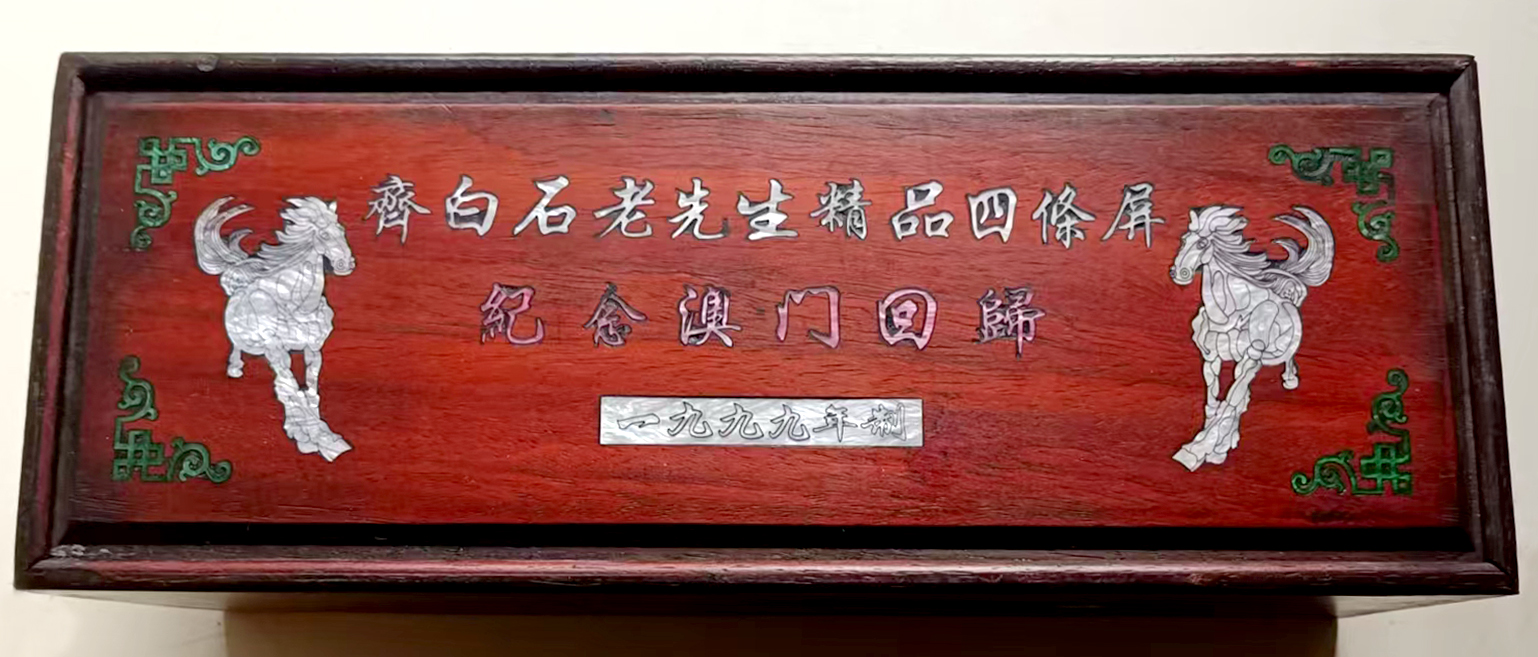 齊白石老先生精品四條屏
紀念澳门回歸
一九九九年制